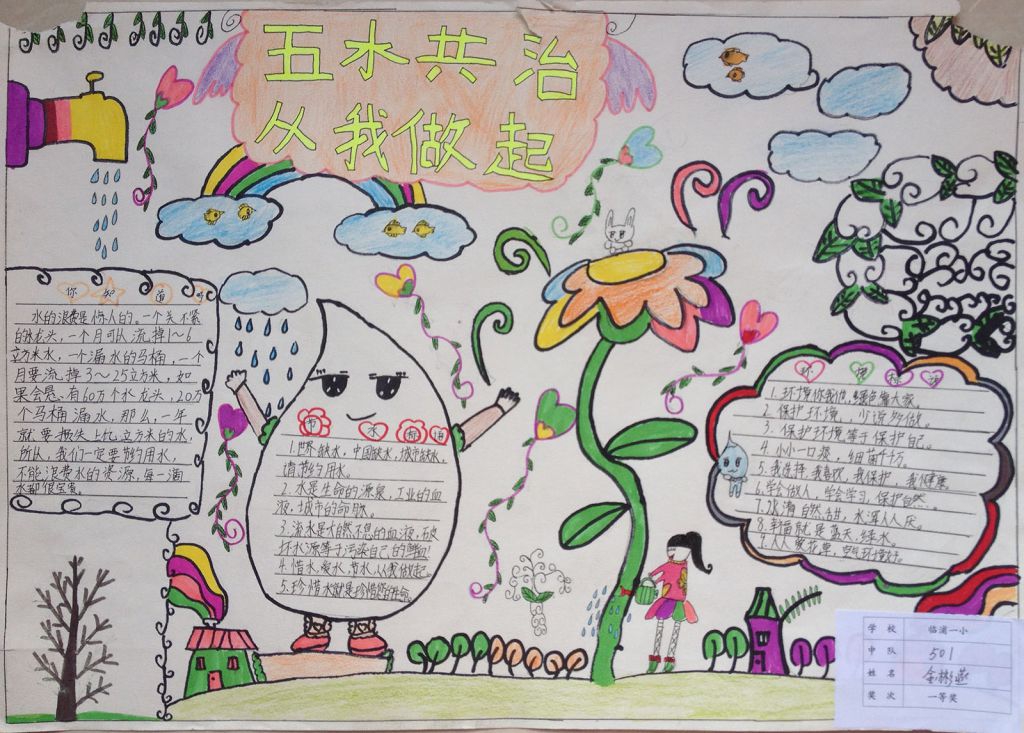 五水共治
从我做起
你知道吗
水的浪费是惊人的。一个关不紧
的水龙头,一个月可以流掉1~6
立方米水,一个漏水的马桶,一个
月要流掉3~25立方米,如
有60万个水龙头,20万
个马桶漏水,那么,一年
就要损失上亿立方米的水,
所以,我们一定要节约用水,
不能浪费水的资源,每一滴
水都很宝贵。
节水标语
1.世界缺水,中国缺水,城市缺水,
请节约用水。
2.水是生命的源泉,工业的血
液,城市的命脉。
3.流水是大自然不息的血液,破
坏水源等于污染自己的
4.惜水、爱水、节水,从我做起。
5.珍惜水就是珍惜您的生命
环境标语
1.环境你我他,绿色靠大家
2.保护环境,少说多做
3.保护环境等于保护自己。
4.小小一口痰,细菌千万。
5.我选择,我喜欢,我保护,我健康
6.学会做人,学会学习,保护自然。
7.水清自然人人
8.幸福就是蓝天、绿水。
9.人人爱花草,空气环境好。
学校 临浦一小
中队 501
姓名 金彬燕
奖次 一等奖